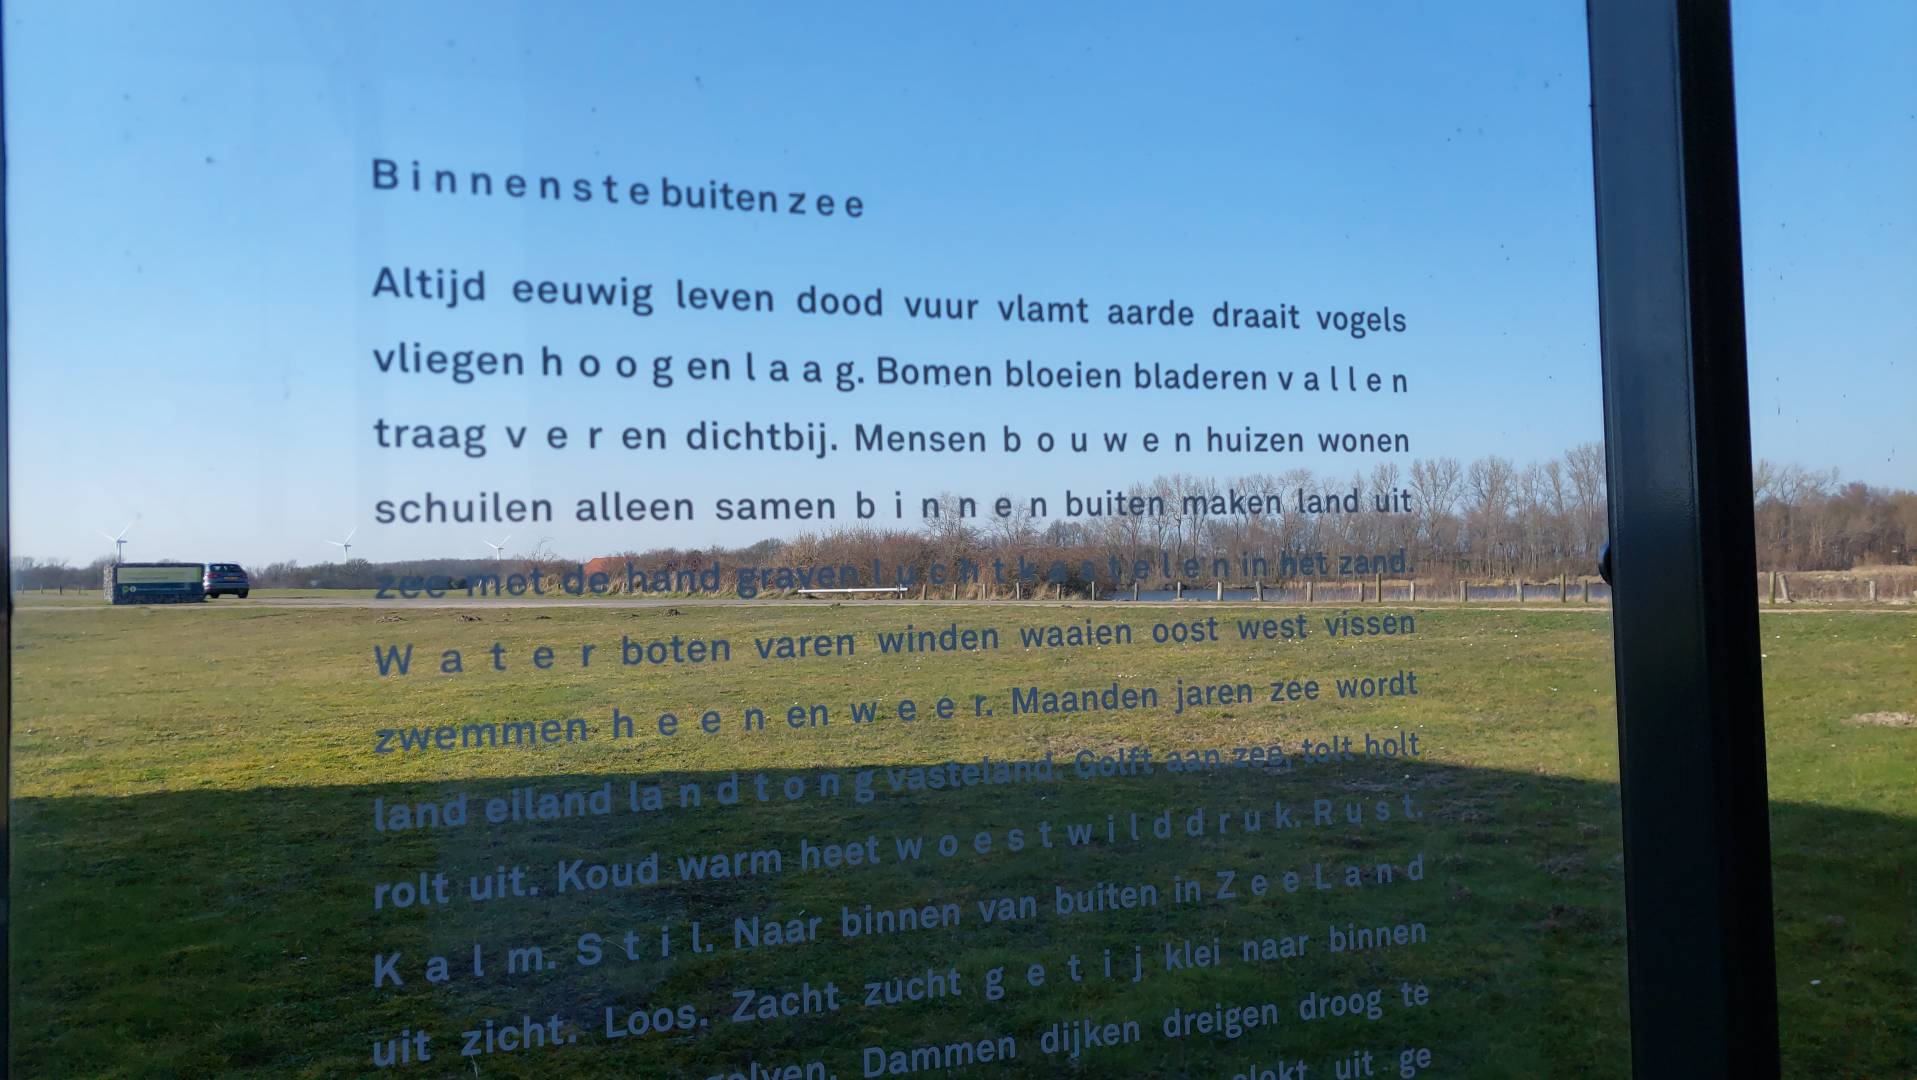 B i n n e n s t e buiten z e e
Altijd eeuwig leven dood vuur vlamt aarde draait vogels
vliegen h o o g en l a a g. Bomen bloeien bladeren v a l l e n
traag v e r en dichtbij. Mensen b o u w e n huizen wonen
schuilen alleen samen b i n n e n buiten maken land uit
zee met de hand graven l u c h t k a s t e l e n in het zand.
W a t e r boten varen winden waaien oost west vissen
zwemmen h e e n en w e e r. Maanden jaren zee wordt
land eiland la n d t o n g vasteland. Golft aan zee, tolt holt
rolt uit. Koud warm heet w o e s t w i l d d r u k. R u s t.
K a l m. S t i l. Naar binnen van buiten in Z e e L a n d
uit zicht. Loos. Zacht zucht g e t i j klei naar binnen
Dammen dijken dreigen droog te
uit ge